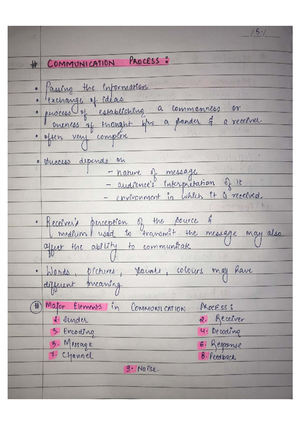 # COMMUNICATION PROCESS :
• Passing the Information
• exchange of ideas
• process of establishing a commonness or
oneness of thought b/w a sender & a receiver
• often very complex
• success depends on
– nature of message
– audience's interpretation of it
– environment in which it is received.
• Receiver's perception of the source &
medium used to transmit the message may also
affect the ability to communicate
• Words, pictures, sounds, colours may have
different meaning
# Major Elements in COMMUNICATION PROCESS :
1· Sender 2· Receiver
3· Encoding 4· Decoding
5· Message 6· Response
7· Channel 8· Feedback
9· NOISE.